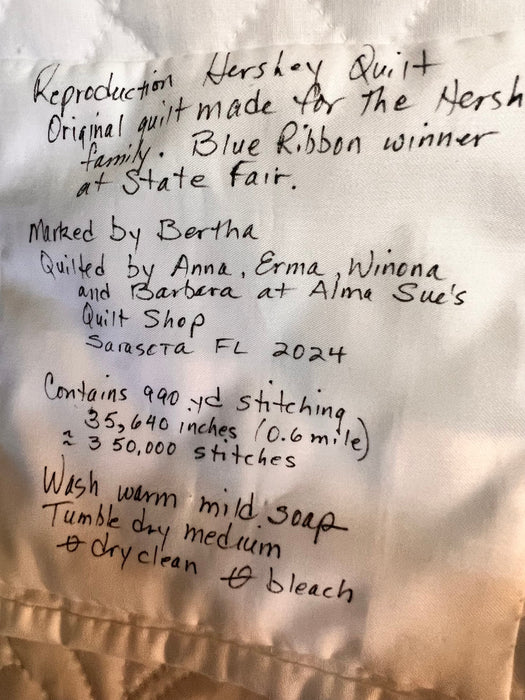 Reproduction Hershey Quilt
Original quilt made for The Hersh
family. Blue Ribbon winner
at State Fair.
Marked by Bertha
Quilted by Anna, Erma, Winona
and Barbara at Alma Sue's
Quilt Shop
Sarasota FL 2024
Contains 990 yd stitching
35,640 inches (0.6 mile)
≈ 350,000 stitches
Wash warm mild soap
Tumble dry medium
∅ dry clean ∅ bleach